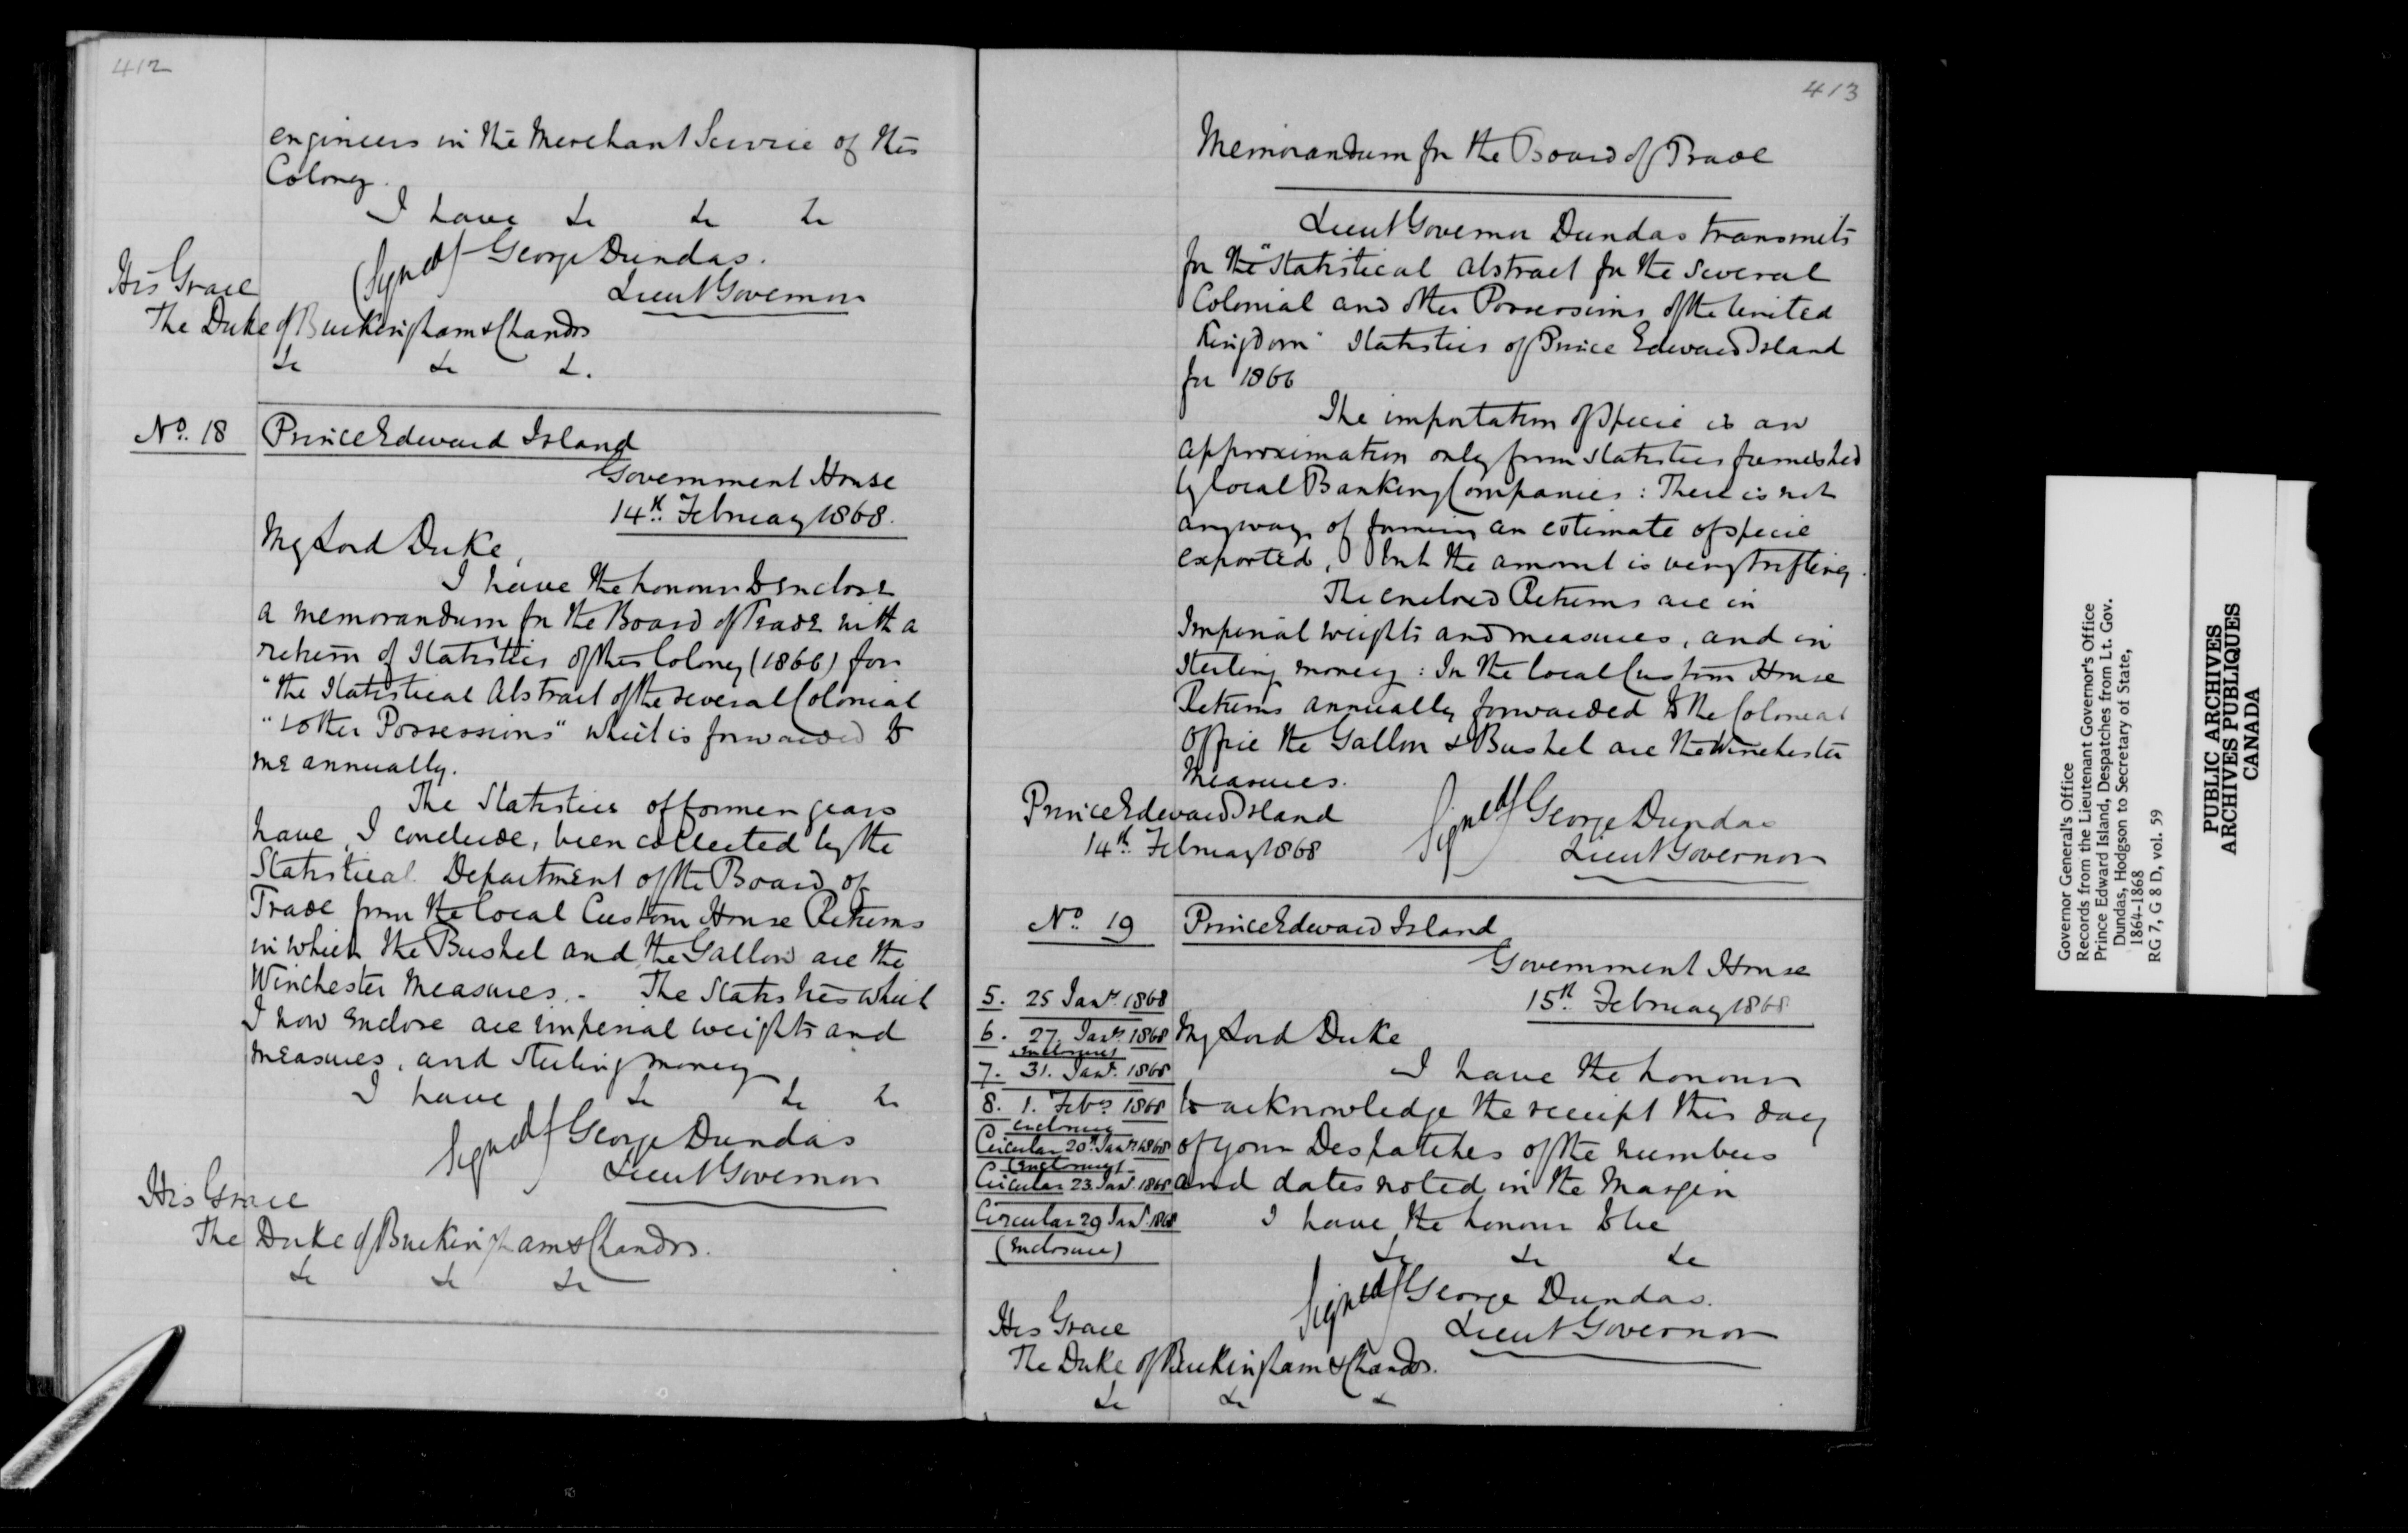 412
engineers in the Merchant Service of this
Colony.
I have &c &c &c
(Signed) George Dundas.
Lieut Governor
His Grace
The Duke of Buckingham & Chandos
&c &c &.
No. 18
Prince Edward Island
Government House
14th February 1868.
My Lord Duke,
I have the honour to enclose
a memorandum for the Board of Trade with a
return of Statistics of this Colony (1866) for
"the Statistical Abstract of the several Colonial
"& other Possessions" which is forwarded to
me annually.
The Statistics of former years
have, I conclude, been collected by the
Statistical Department of the Board of
Trade from the local Custom House Returns
in which the Bushel and the Gallon are the
Winchester Measures. - The Statistics which
I now enclose are imperial weights and
measures, and sterling money
I have &c &c &c
Signed George Dundas
Lieut Governor
His Grace
The Duke of Buckingham & Chandos.
&c &c &c
413
Memorandum for the Board of Trade
Lieut Governor Dundas transmits
for the "Statistical Abstract for the several
Colonial and other Possessions of the United
Kingdom" Statistics of Prince Edward Island
for 1866
The importation of specie is an
approximation only from statistics furnished
by local Banking Companies : There is not
any way of forming an estimate of specie
exported, but the amount is very trifling.
The enclosed Returns are in
Imperial weights and measures, and in
Sterling money : In the local Custom House
Returns annually forwarded to the Colonial
Office the Gallon & Bushel are the Winchester
Measures.
Prince Edward Island
14th February 1868
Signed George Dundas
Lieut Governor
No. 19
Prince Edward Island
Government House
15th February 1868
5. 25 Jany. 1868
6. 27. Jany. 1868
Enclosures
7. 31. Jany. 1868
8. 1. Feby 1868
Enclosure
Circular 20th Jany 1868
(Enclosures)
Circular 23. Jany. 1868
Circular 29 Jany. 1868
(Enclosure)
My Lord Duke
I have the honour
to acknowledge the receipt this day
of your Despatches of the numbers
and dates noted in the Margin
I have the honour to be
&c &c &c
Signed George Dundas.
Lieut Governor
His Grace
The Duke of Buckingham & Chandos.
&c &c &
Governor General's Office
Records from the Lieutenant Governor's Office
Prince Edward Island, Despatches from Lt. Gov.
Dundas, Hodgson to Secretary of State,
1864-1868
RG 7, G 8 D, vol. 59
PUBLIC ARCHIVES
ARCHIVES PUBLIQUES
CANADA